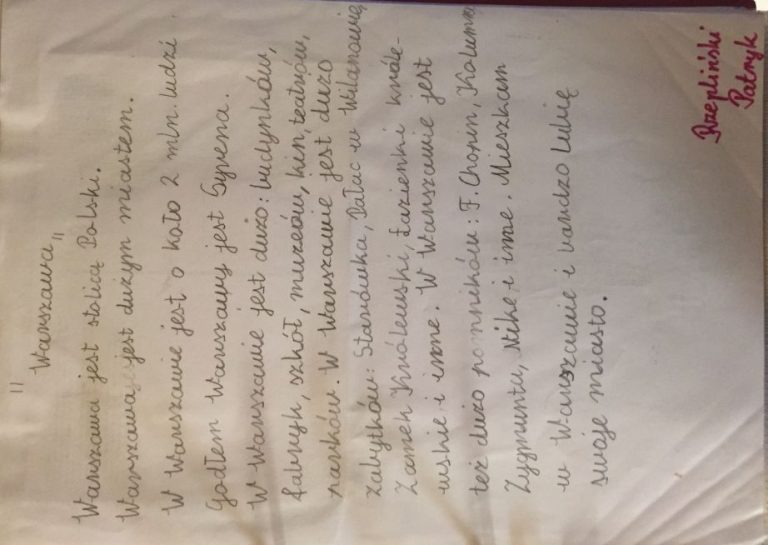 "Warszawa"
Warszawa jest stolicą Polski.
Warszawa jest dużym miastem.
W Warszawie jest o koło 2 mln. ludzi.
Godłem Warszawy jest Syrena.
W Warszawie jest dużo: budynków,
fabryk, szkół, muzeów, kin, teatrów,
parków. W Warszawie jest dużo
zabytków: Starówka, Pałac w Wilanowie,
Zamek Królewski, Łazienki króle-
wskie i inne. W Warszawie jest
też dużo pomników: F. Chopin, Kolumna
Zygmunta, Nike i inne. Mieszkam
w Warszawie i bardzo lubię
swoje miasto.
Rzepliński
Patryk